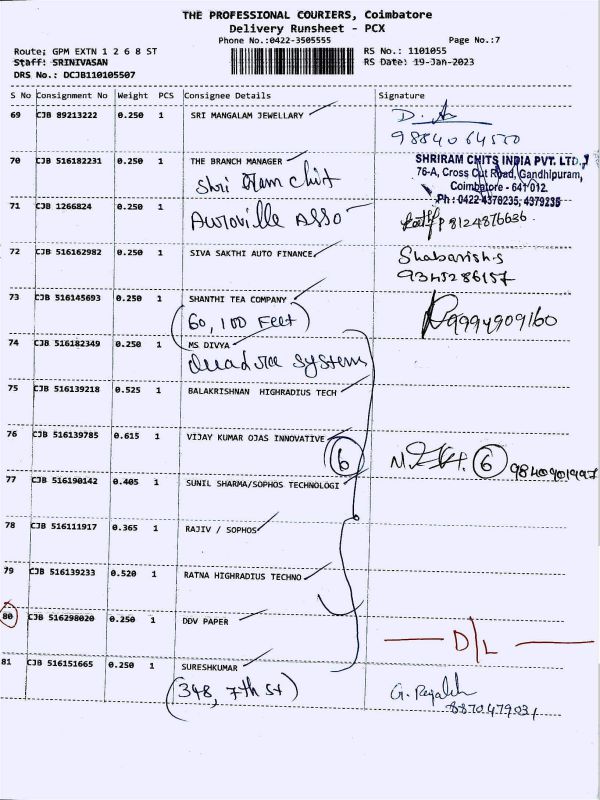 THE PROFESSIONAL COURIERS, Coimbatore
Delivery Runsheet - PCX
Phone No.:0422-3505555
Page No.:7
Route; GPM EXTN 1 2 6 8 ST
RS No.: 1101055
Staff: SRINIVASAN
RS Date: 19-Jan-2023
DRS No.: DCJB110105507
S No Consignment No Weight PCS Consignee Details Signature
69 CJB 89213222 0.250 1 SRI MANGALAM JEWELLARY
9884064550
70 CJB 516182231 0.250 1 THE BRANCH MANAGER
Shri Ram Chit
SHRIRAM CHITS INDIA PVT. LTD.,
76-A, Cross Cut Road, Gandhipuram,
Coimbatore - 641 012.
Ph : 0422-4376235, 4379235
71 CJB 1266824 0.250 1
Auroville Asso
8124876636
72 CJB 516162982 0.250 1 SIVA SAKTHI AUTO FINANCE
Shabarish.s
9345286157
73 CJB 516145693 0.250 1 SHANTHI TEA COMPANY
(60, 100 Feet)
9994909160
74 CJB 516182349 0.250 1 MS DIVYA
systems
75 CJB 516139218 0.525 1 BALAKRISHNAN HIGHRADIUS TECH
76 CJB 516139785 0.615 1 VIJAY KUMAR OJAS INNOVATIVE
6
6 9840901997
77 CJB 516190142 0.405 1 SUNIL SHARMA/SOPHOS TECHNOLOGI
78 CJB 516111917 0.365 1 RAJIV / SOPHOS
79 CJB 516139233 0.520 1 RATNA HIGHRADIUS TECHNO
80 CJB 516298020 0.250 1 DDV PAPER
D/L
81 CJB 516151665 0.250 1 SURESHKUMAR
(348, 7th st)
8870479031